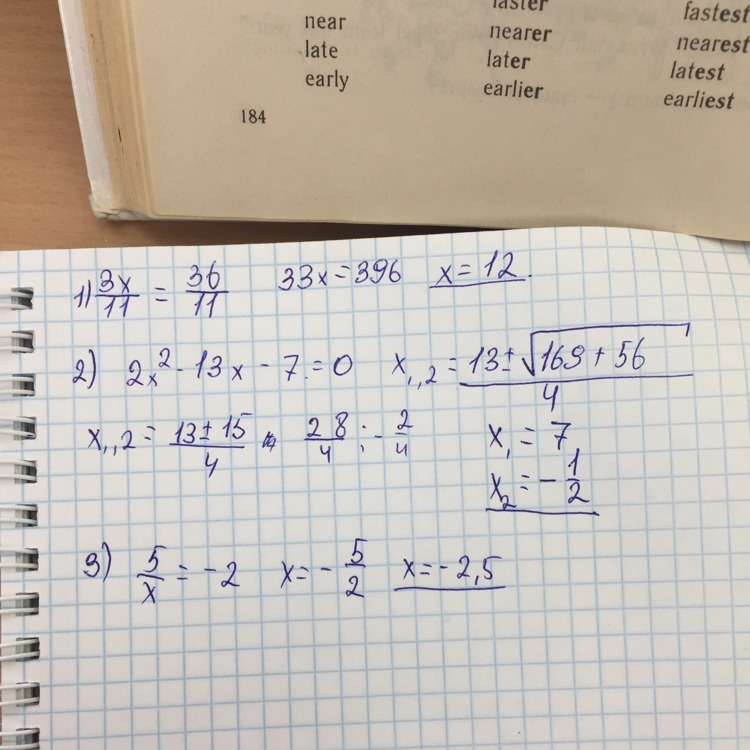 near faster fastest
late nearer nearest
early later latest
earlier earliest
184
1) 3x/11 = 36/11 33x = 396 x = 12.
2) 2x² - 13x - 7 = 0 x₁,₂ = (13 ± √(169 + 56))/4
x₁,₂ = (13 ± 15)/4 = 28/4 ; - 2/4 x₁ = 7
x₂ = - 1/2
3) 5/x = -2 x = - 5/2 x = -2,5